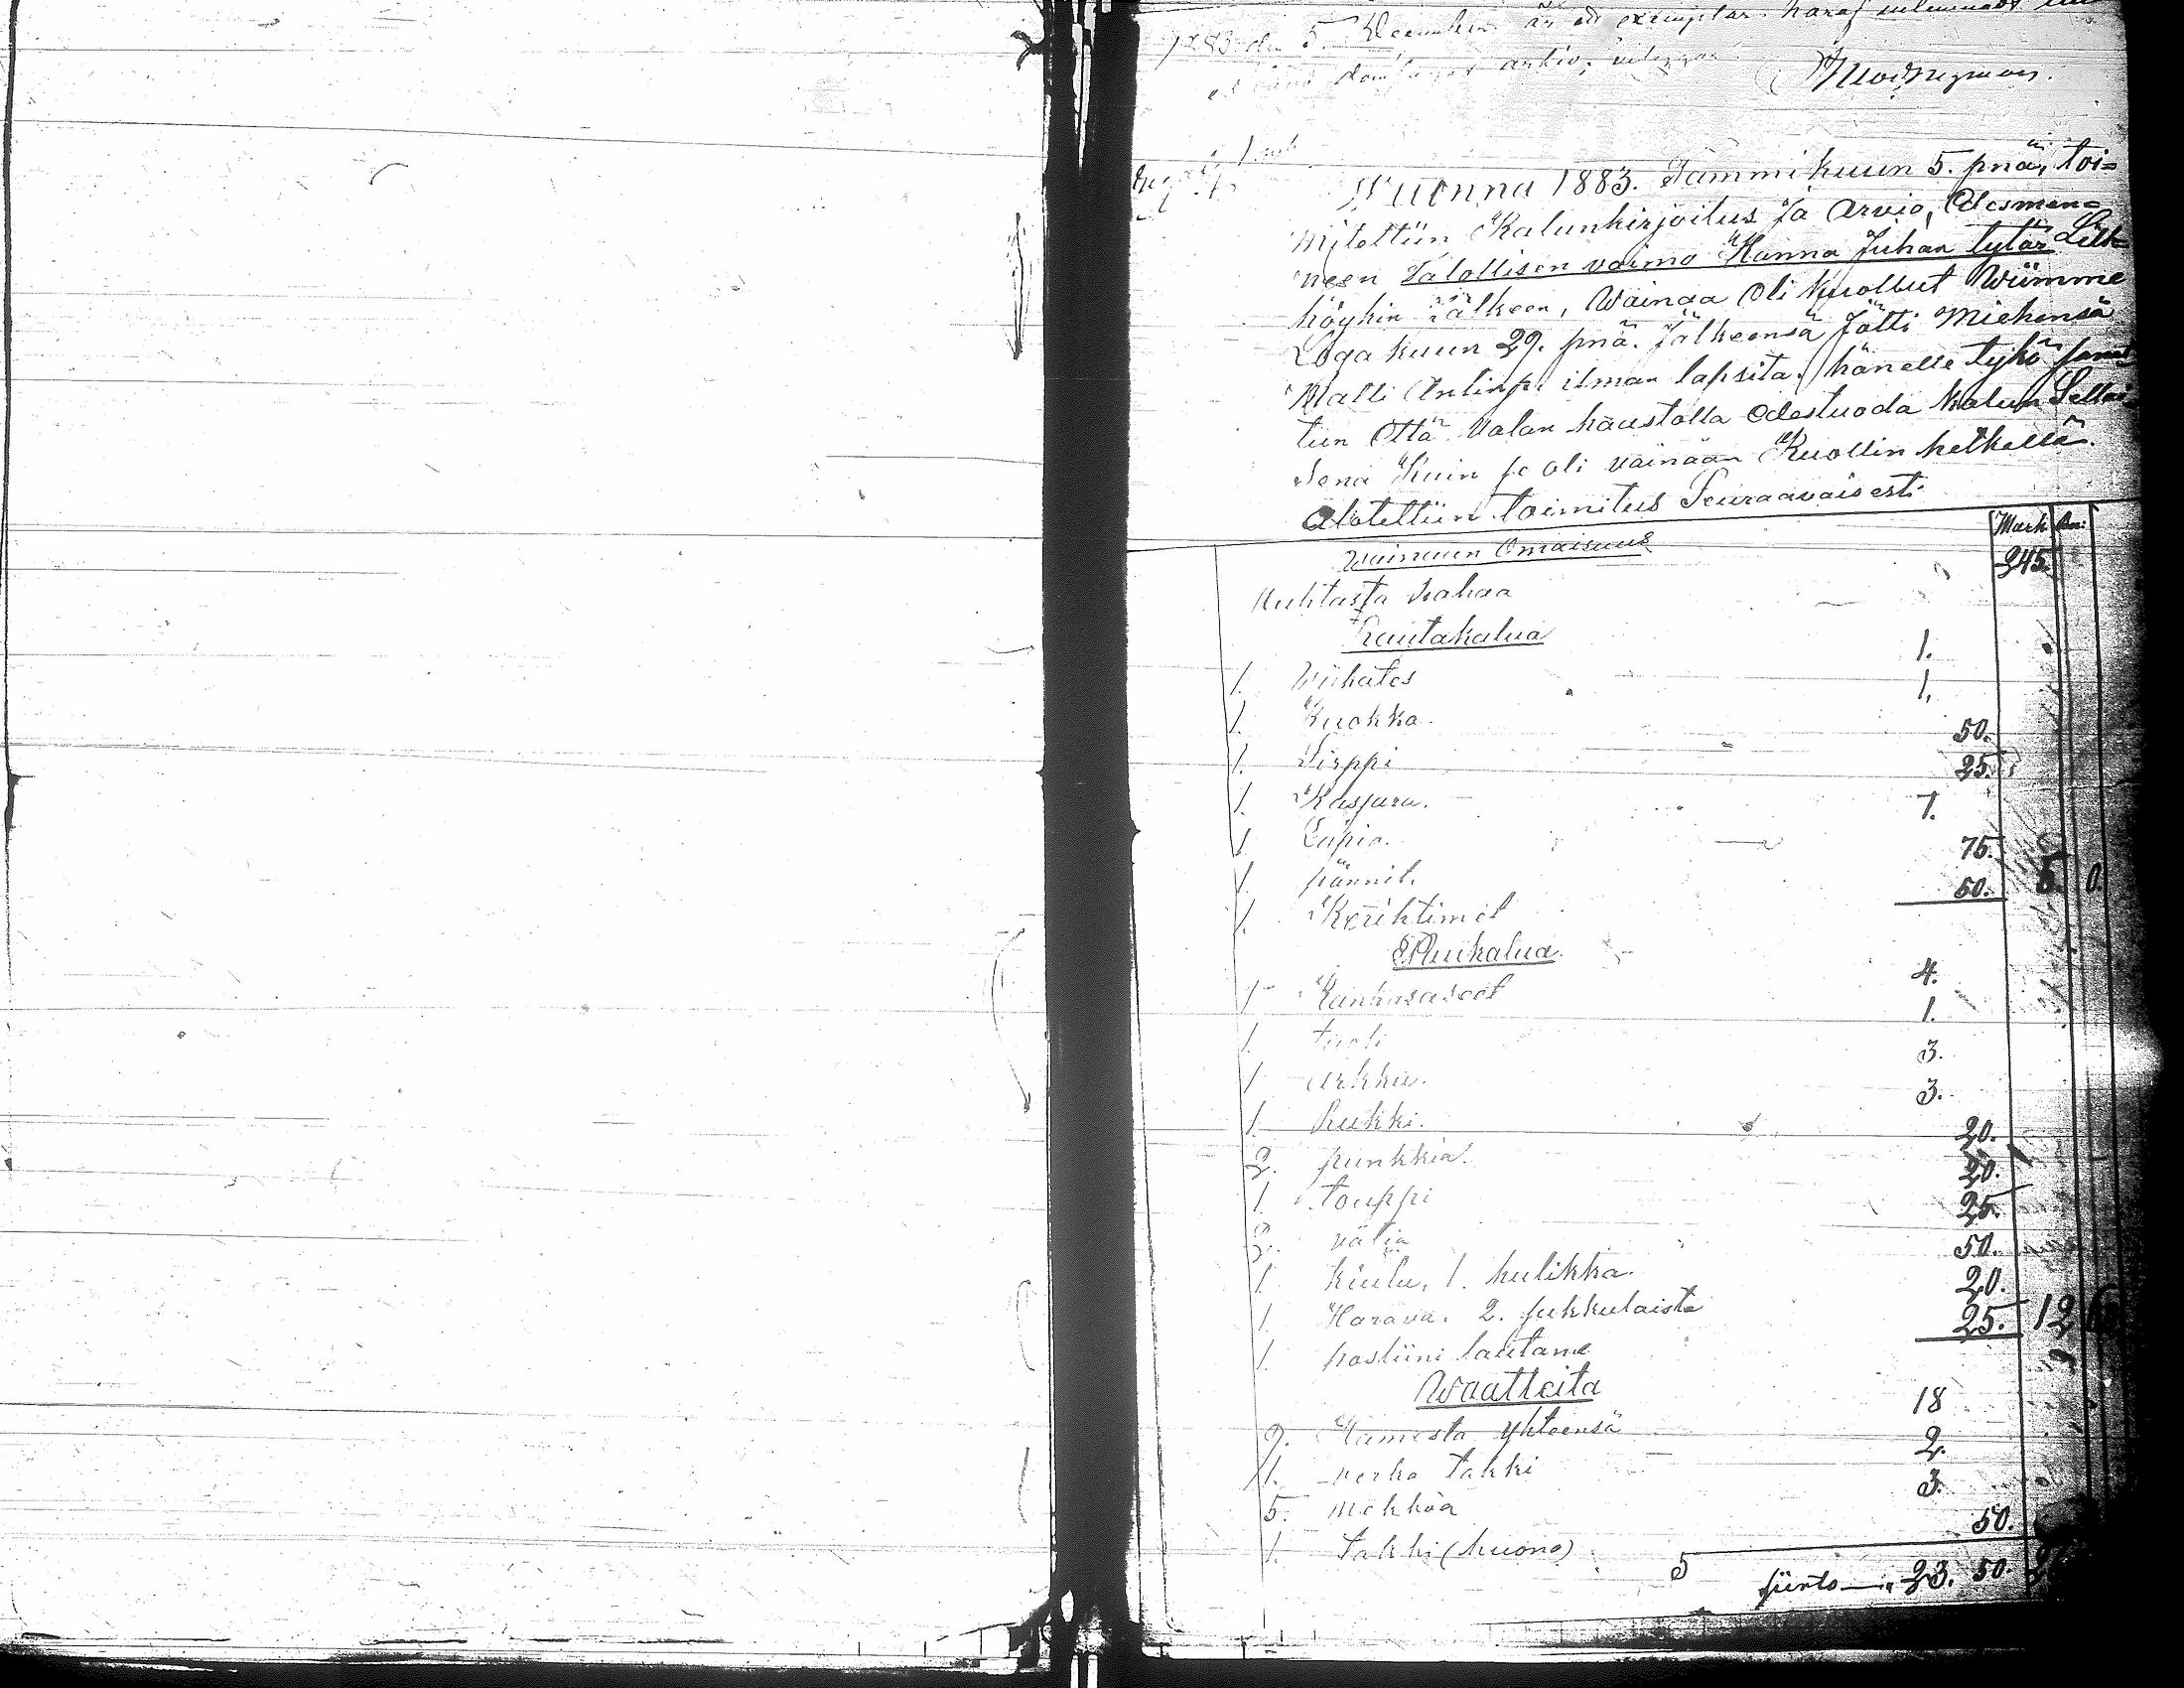 1883 den 5. December är ett exemplar häraf
arkiv,
Vuonna 1883. Tammikuun 5. pnä, toi=
mitettiin Kalunkirjoitus ja arvio, Edesmen=
neen Talollisen vaimo Hanna Juhan tytär
jälkeen, Wainaa Oli Kuollut Wiimme
Loga kuun 29. pnä. Jälkeensä Jätti Miehensä
Matti Antinp. ilman lapsita. hänelle
tiin Että Valan haustolla Edestuoda Kalun Sellai
sena Kuin se oli vainaan Kuollin hetkellä.
Alotettiin toimitus Seuraavaisesti
Mark Pen:
Wainaan Omaisuus
Puhtasta rahaa 245.
Rautakalua
1. Wiikates 1.
1. Kuokka. 1.
1. Sirppi 50.
1. Kassara. 25.
1. Lapio. 1.
1. pännit. 75.
1. Kerihtimet 50. 5. 0.
Puukalua.
1 Kankasaseet 4.
1. tuoli 1.
1 arkku. 3.
1. Rukki. 3.
2. punkkia. 20.
1. touppi 20.
2. vätiä 25.
1. kiulu, 1. kulikka. 50.
1. Harava. 2. pukkulaista 20.
1. posliini lautane 25. 12
Waatteita
9. Hamesta Yhteensä 18
1. verka takki 2.
5. mekkoa 3.
1. Takki (huono) 50.
siirto 23. 50.